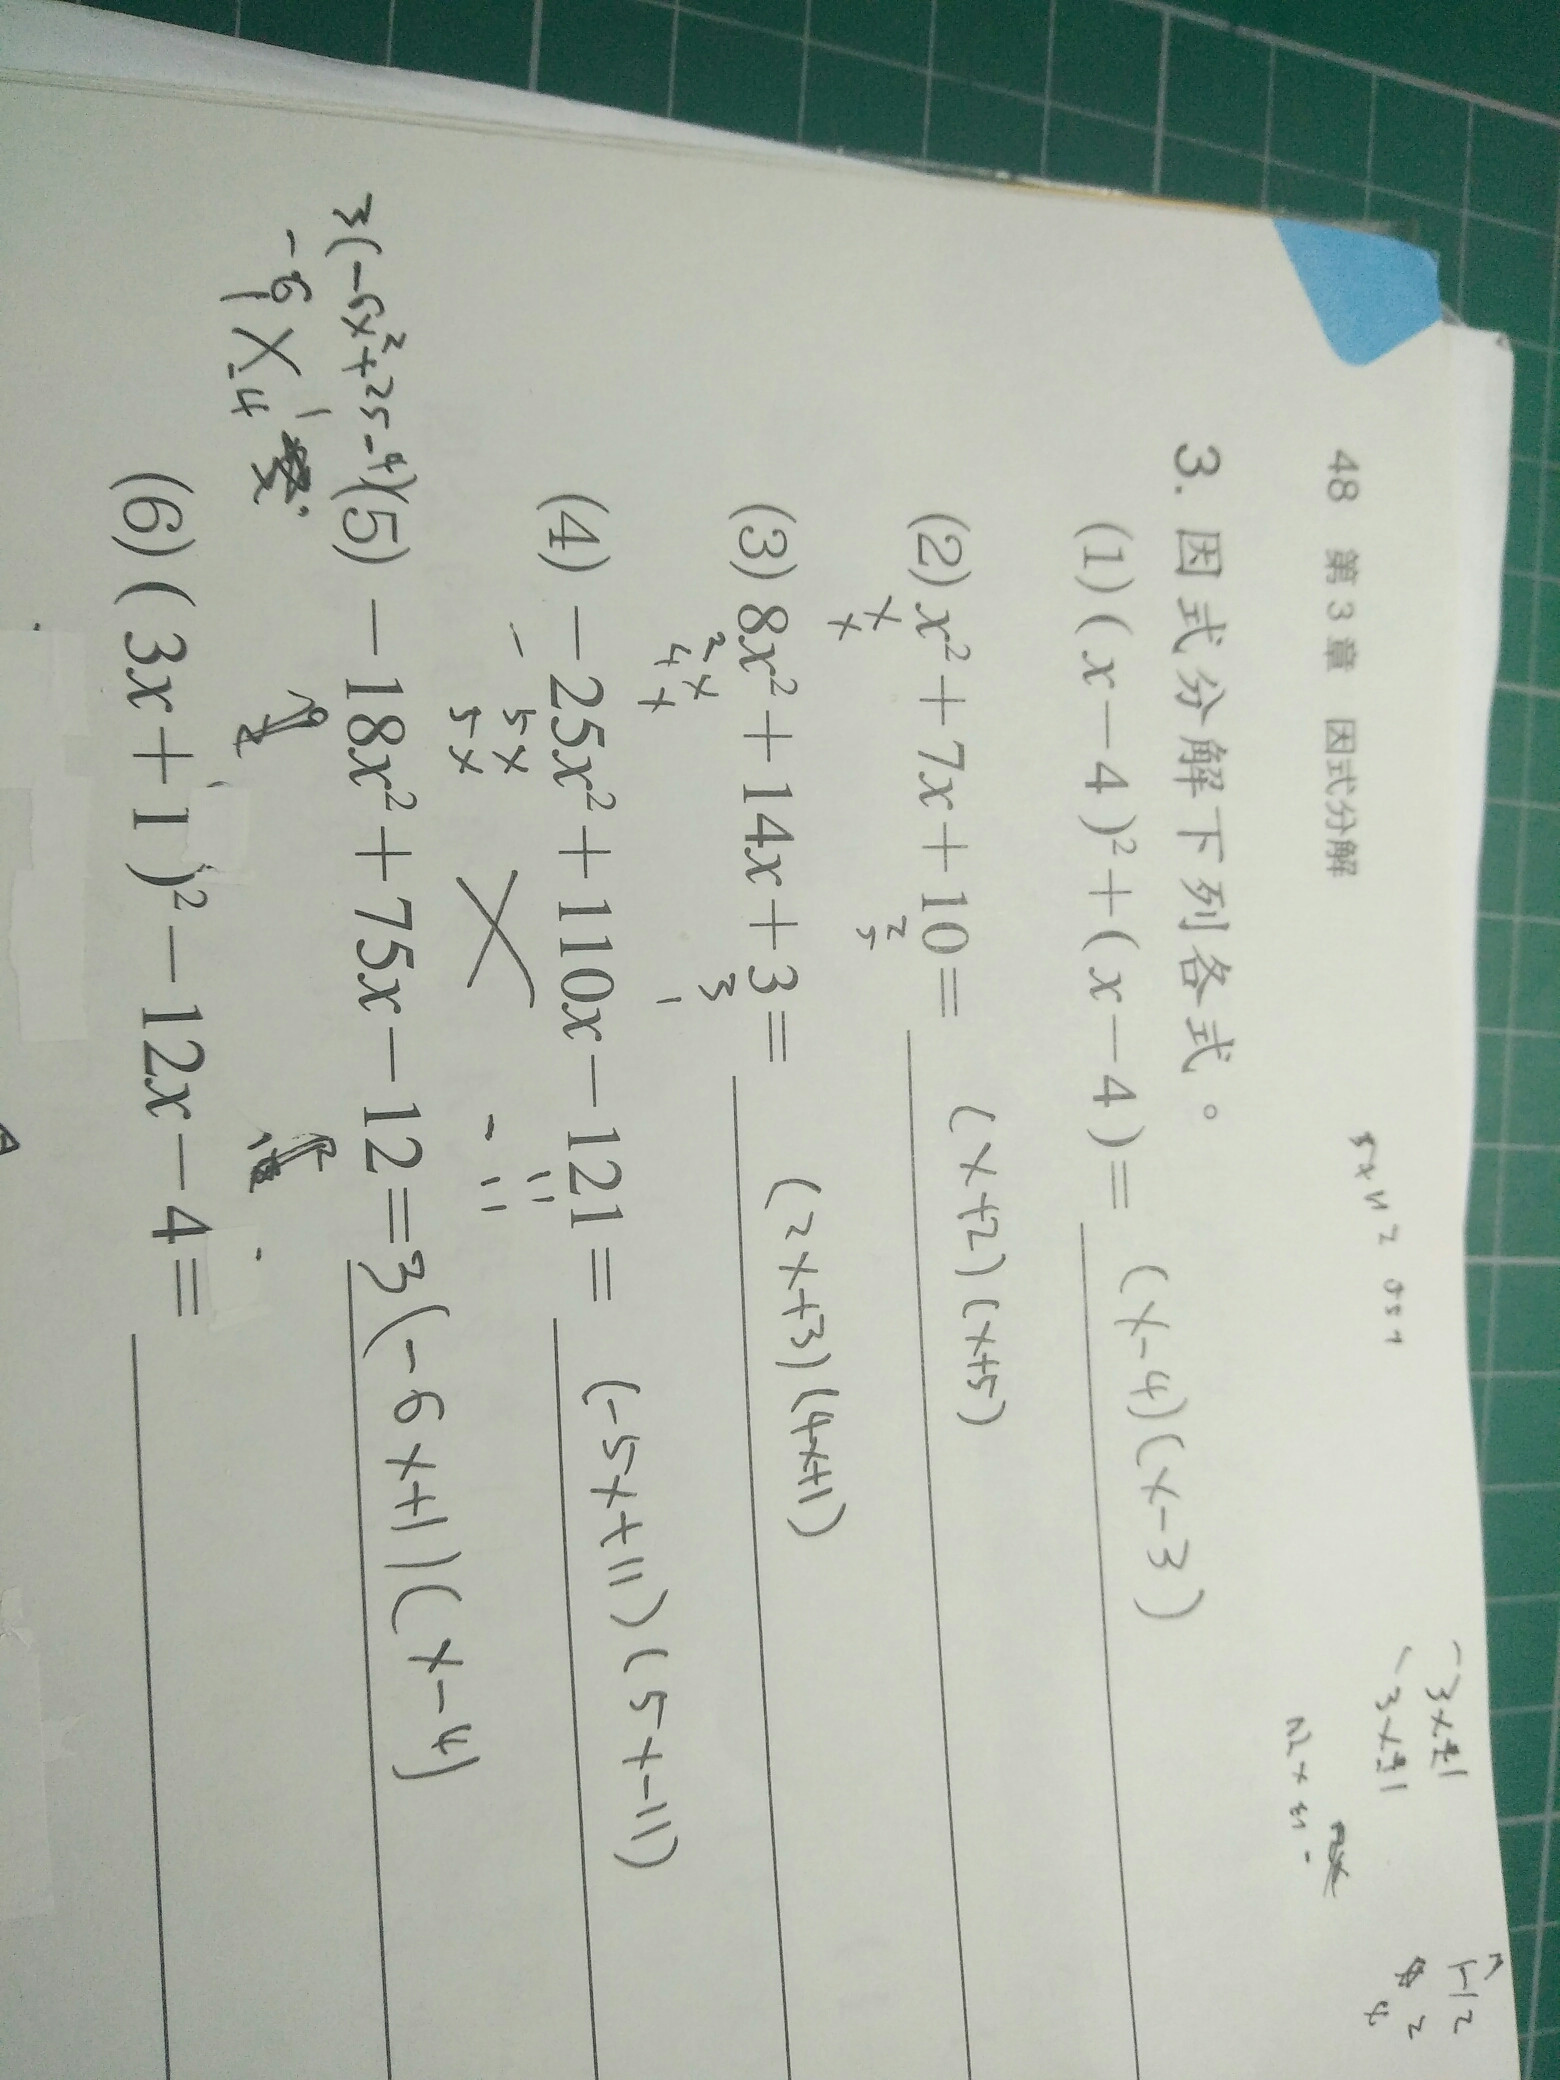 48 第3章 因式分解
3. 因式分解下列各式。
(1)(x－4)²＋(x－4)＝ (x-4)(x-3)
(2) x²＋7x＋10＝ (x+2)(x+5)
x 2
x 5
(3) 8x²＋14x＋3＝ (2x+3)(4x+1)
2x 3
4x 1
(4)－25x²＋110x－121＝ (-5x+11)(5x-11)
- 5x 11
5x - 11
3(-6x²+25-4)(5)－18x²＋75x－12＝3(-6x+1)(x-4)
-6 1
1 -4
(6)(3x＋1)²－12x－4＝